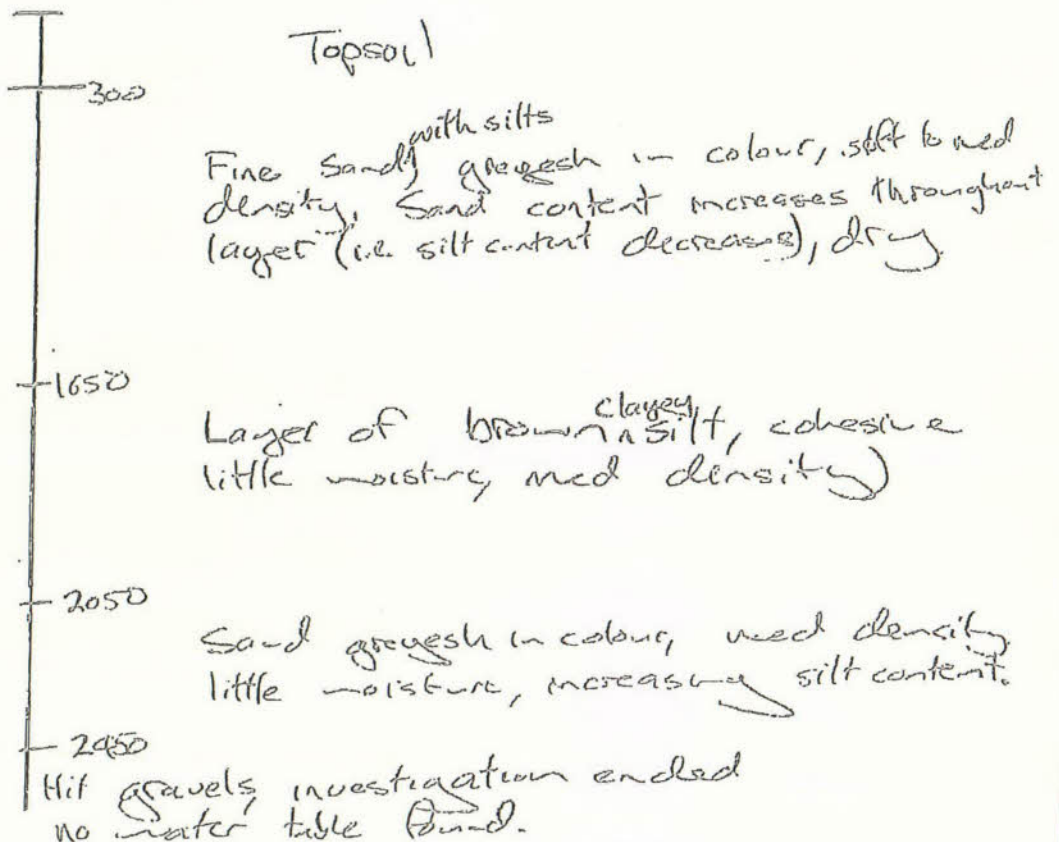 Topsoil
300
with silts
Fine Sand, greyesh in colour, soft to med
density, Sand content increases throughout
layer (i.e. silt content decreases), dry.
1650
clayey
Layer of brown ^ silt, cohesive
little moisture, med density)
2050
Sand greyesh in colour, med density
little moisture, increasing silt content.
2450
Hit gravels, investigation ended
no water table found.